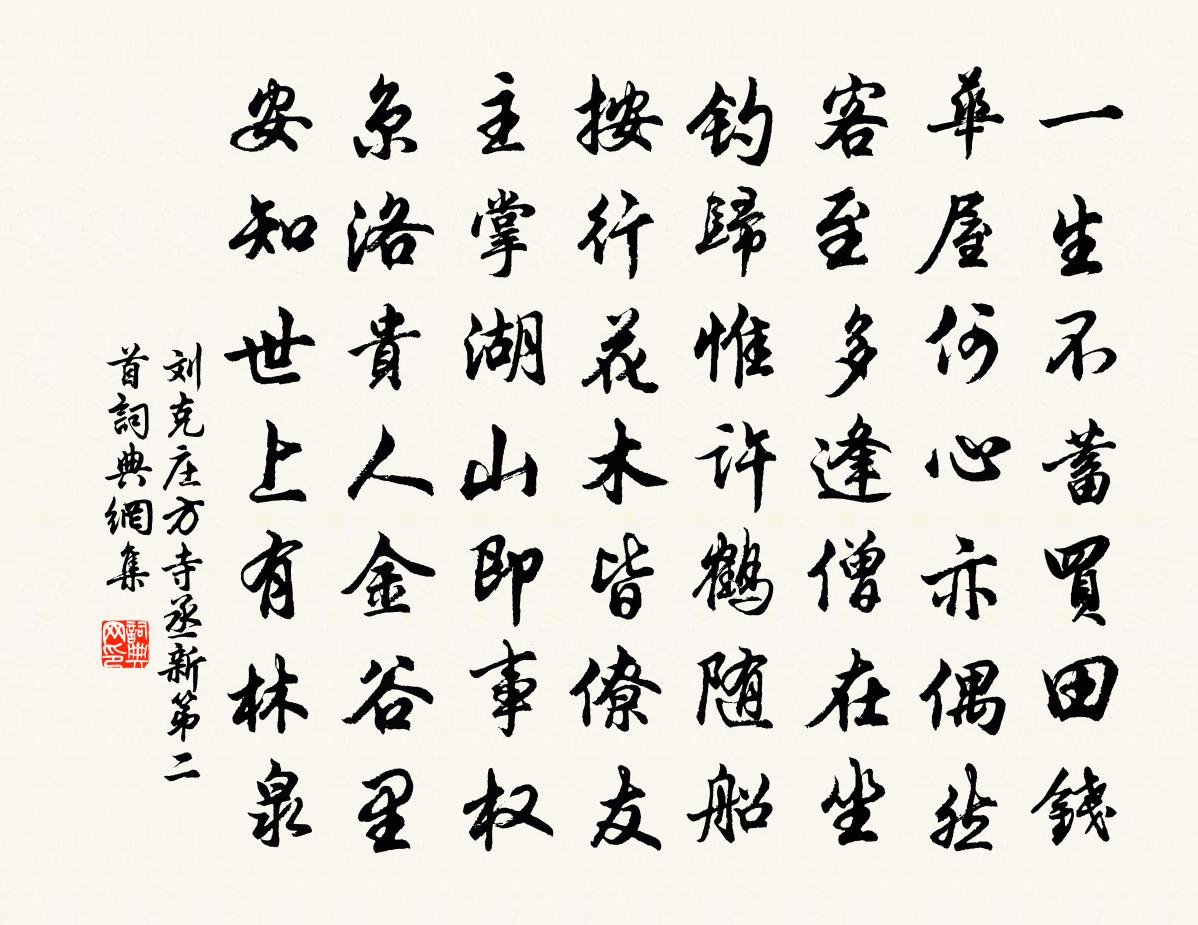 一生不蓄買田錢
華屋何心亦偶然
客至多逢僧在坐
釣歸惟许鹤随船
按行花木皆僚友
主掌湖山即事权
京洛貴人金谷里
安知世上有林泉
刘克庄方寺丞新第二
首詞典網集
詞典网印